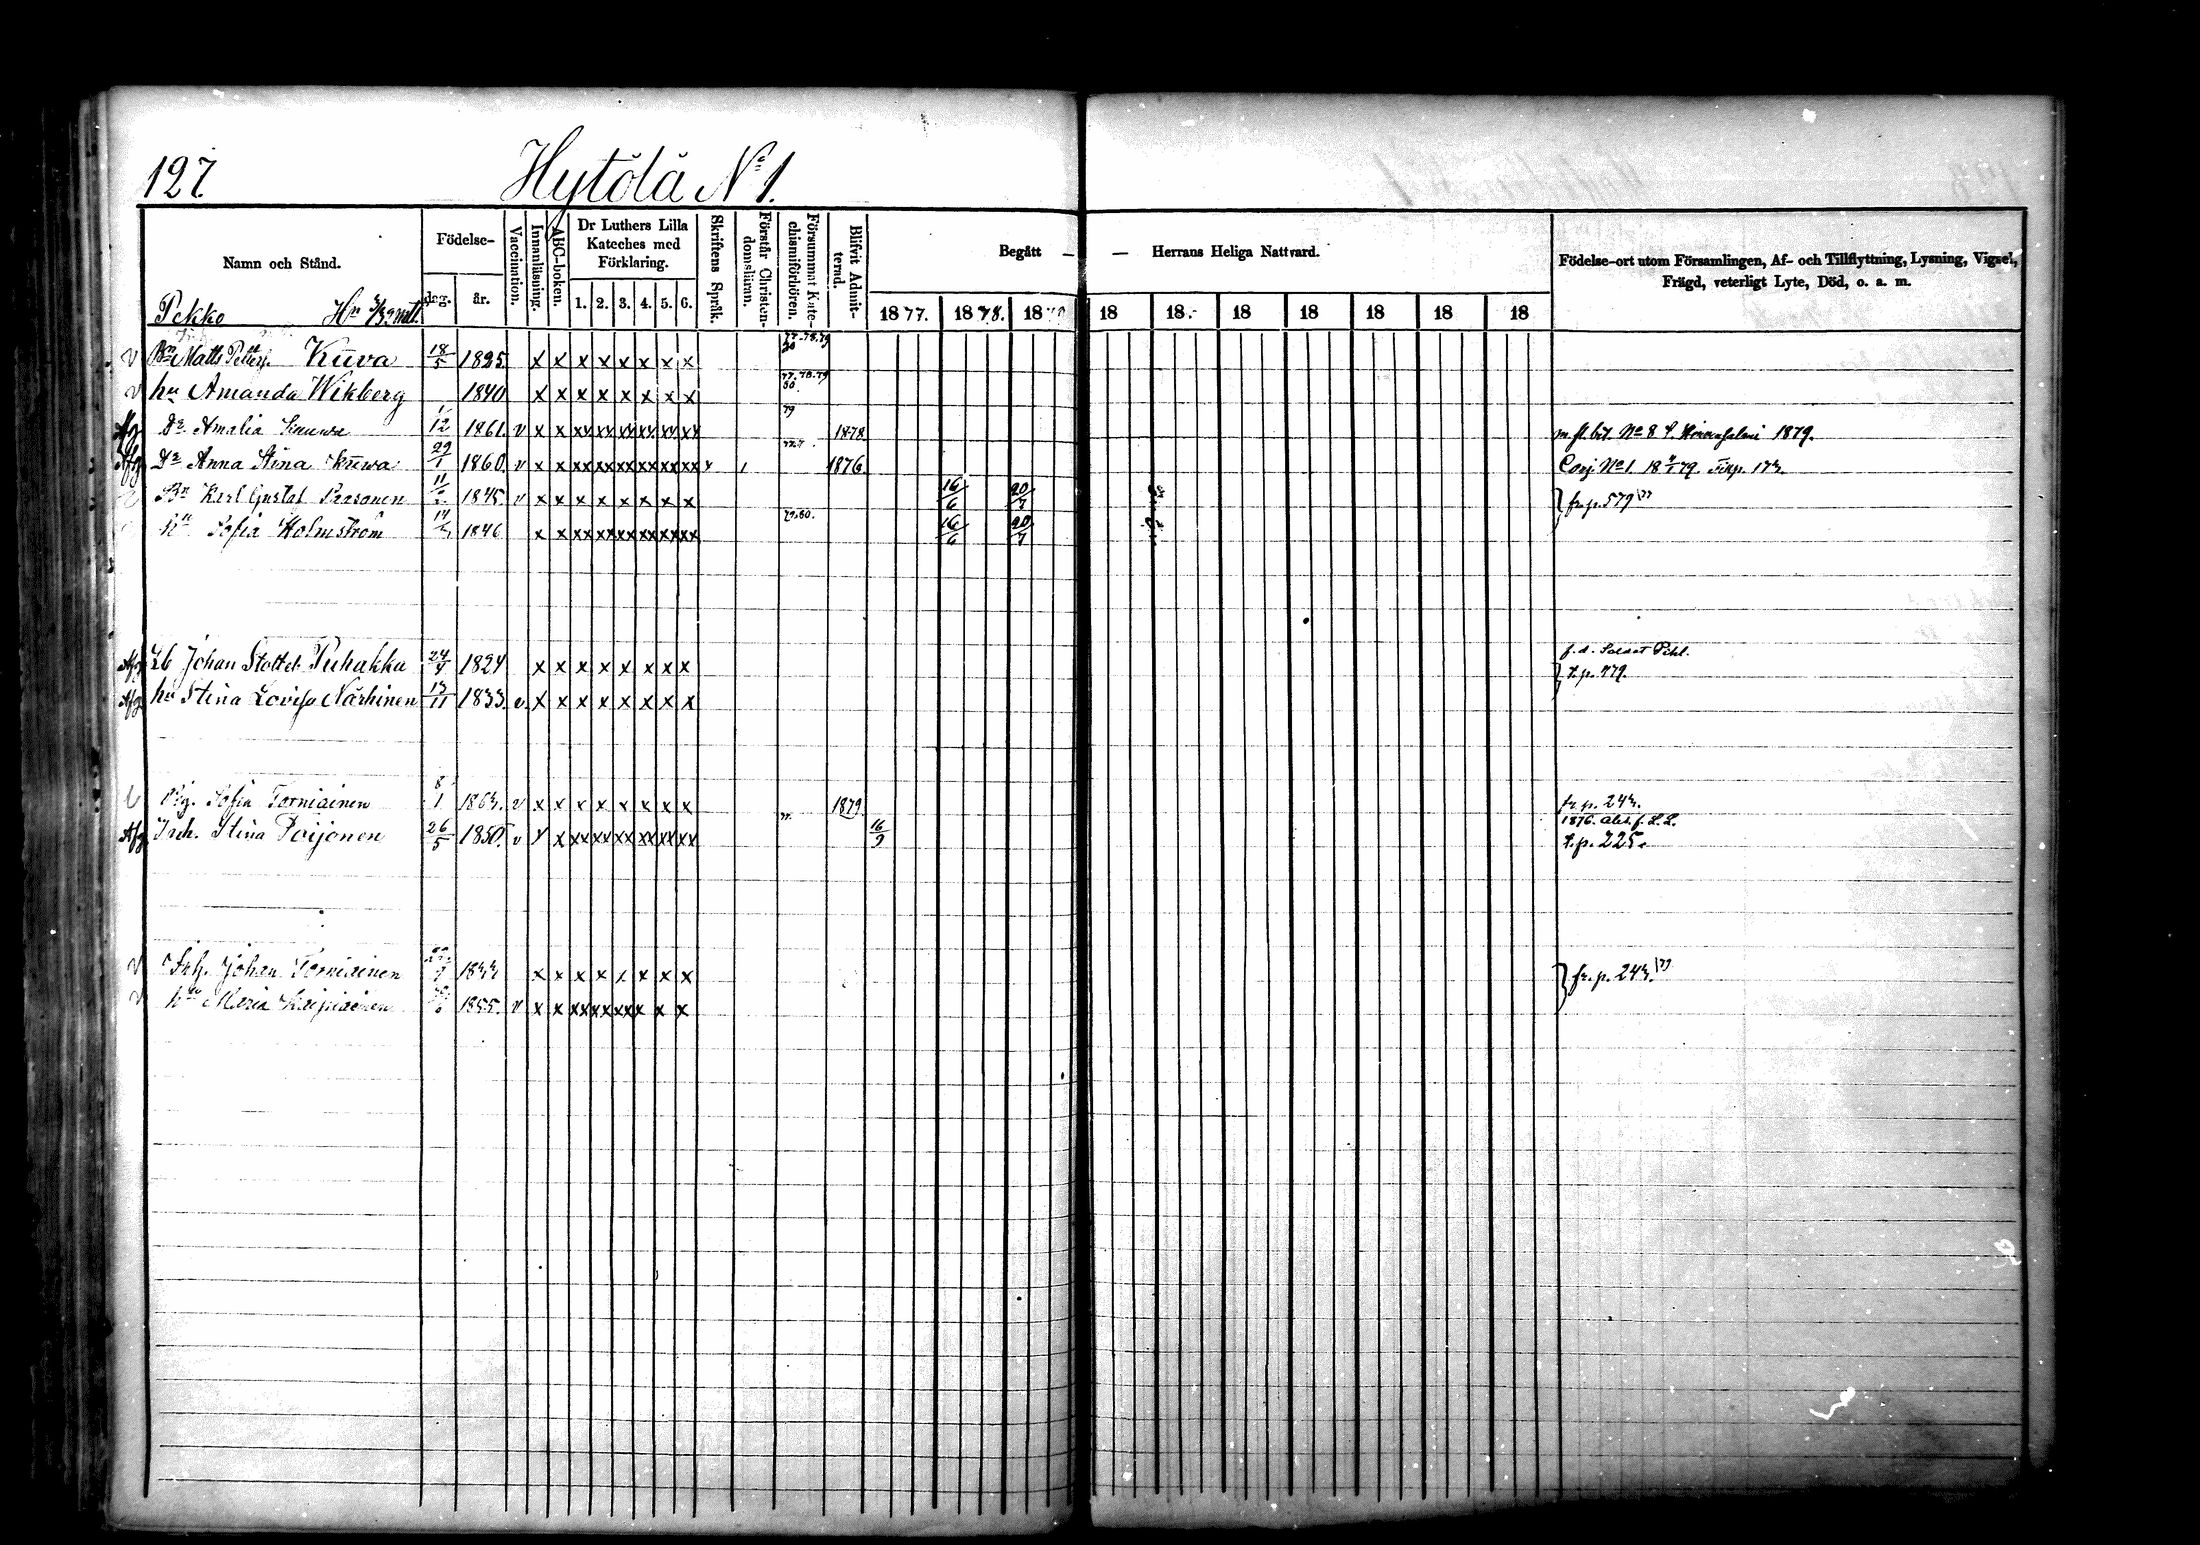 127.
Hytölä No 1.
Namn och Stånd.
Födelse-
dag.
år.
Vaccination.
Innanläsning.
ABC-boken.
Dr Luthers Lilla
Kateches med
Förklaring.
1. 2. 3. 4. 5. 6.
Skriftens Språk.
Förstår Christen-
domsläran.
Försummat Kate-
chismiförhören.
Blifvit Admit-
terad.
Begått — — Herrans Heliga Nattvard.
1877. 1878. 18 18 18 18 18 18 18 18
Födelse-ort utom Församlingen, Af- och Tillflyttning, Lysning, Vigsel,
Frägd, veterligt Lyte, Död, o. a. m.
Pekko Hn
v Matts Petterss. Kuva 18/5 1825. x x x x x x x x 77.78.79
v hu Amanda Wikberg 1840 x x x x x x x x 77.78.79 80
Afg Dr Amalia 12 1861. v x x xx xx xx xx xx xx 79 1878 No 8 1879.
Afg Dr Anna Stina Kuwa 29/1 1860. v x x xx xx xx xx xx xx 1876 No 1. 173.
Karl Gustaf Paasonen 11 1845. v x x x x x x x x 16/6 20/7 fr. p. 579
hu Sofia Holmström 14 1846 x x xx xx xx xx xx xx 79.80. 16/6 20/7
f. d. Soldat Pihl.
Afg Johan Puhakka 24/4 1824 x x x x x x x x t. p. 779.
Afg hu Stina Lovisa Närhinen 13/11 1833. v. x x x x x x x x
Pig. Sofia Torniainen 8/1 1863. v x x x x x x x x 1879 fr. p. 243.
1876.
Afg Inh. Stina Poijonen 26/5 1850. v x x xx xx xx xx xx xx 16/9 t. p. 225.
v Inh. Johan Torniainen 1833 x x x x x x x x fr. p. 243.
v hu Maria 1855. v x x xx xx xx x x x